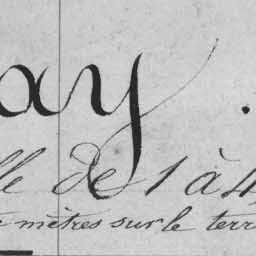 ay.
lle de 1 à 4
mètres sur le terr